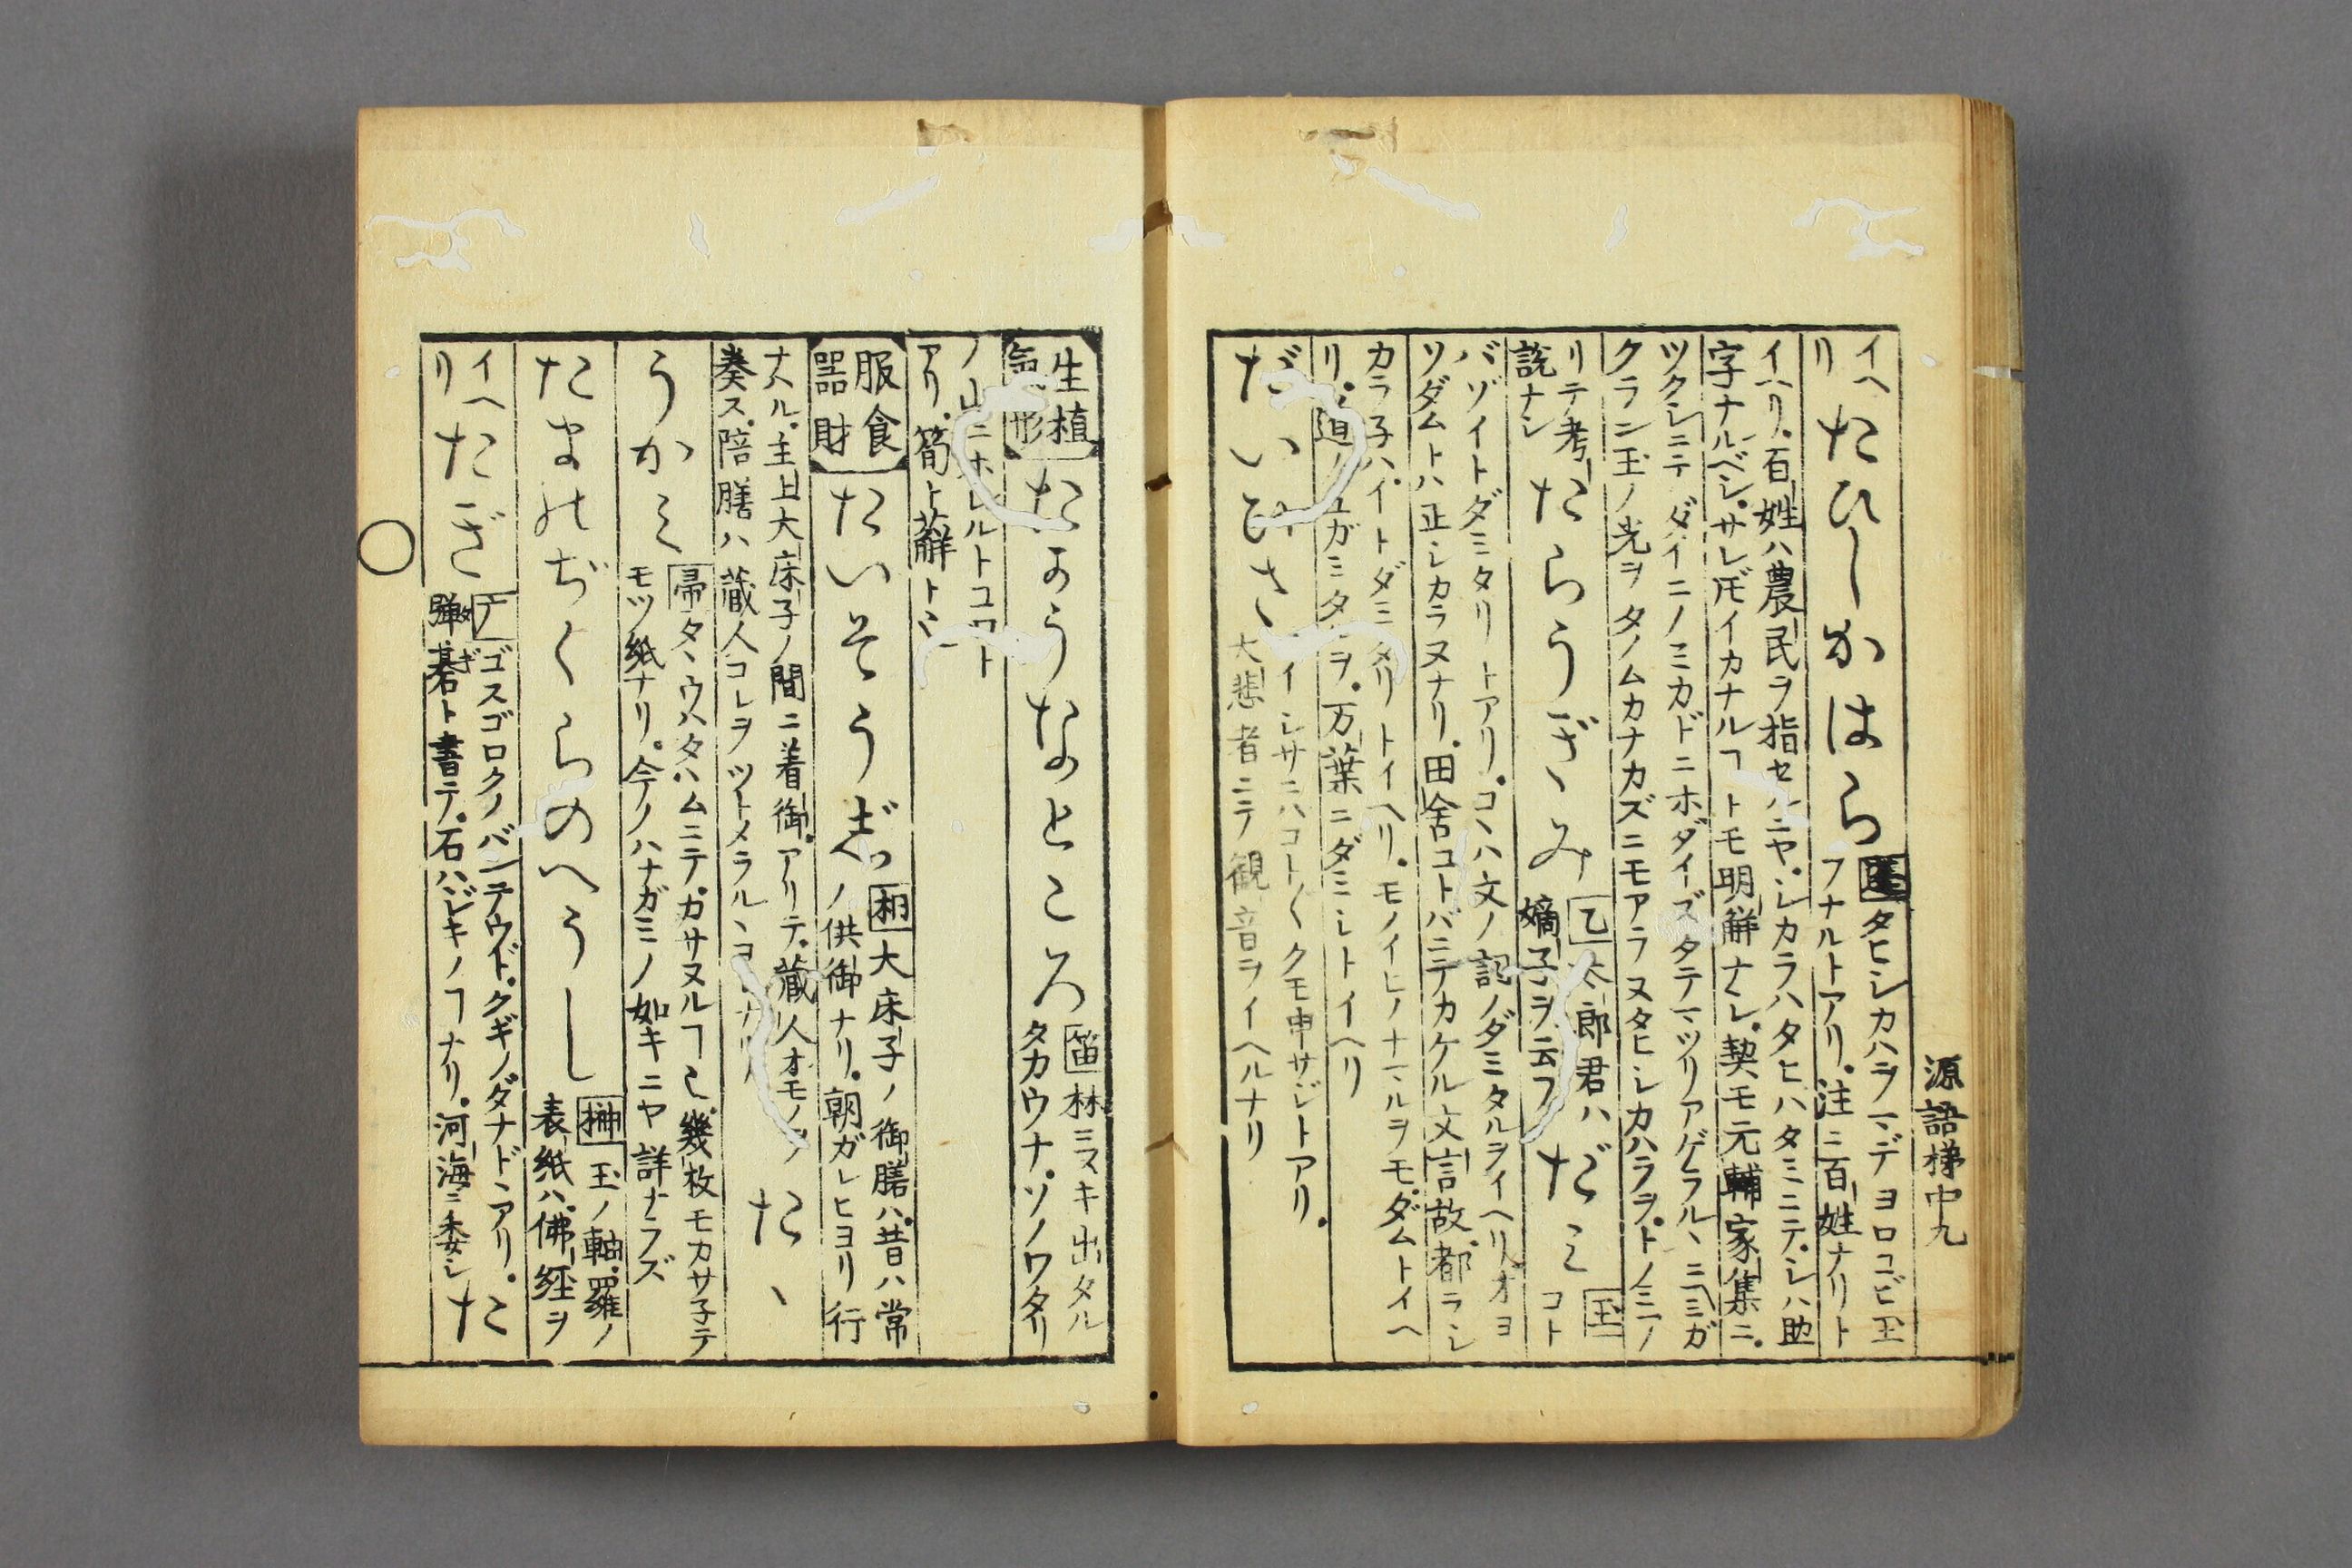 源語梯中九
イヘリ
たひしかはら
タヒシカハラマデヨロコビ玉
フナルトアリ。注ニ百姓ナリト
イハリ。百姓ハ農民ヲ指セルニヤ。シカラハタヒハタミニテ。シハ助
字ナルベシ。サレ𪜈イカナルヿトモ明解ナシ。契モ元輔家集ニ。
ツクシニテダイニノミカドニホダイーズタテマツリアゲラルヽニミガ
クラン玉ノ光ヲタノムカナカズニモアラヌタヒシカハラヲ。トノミノ
リテ考
説ナシ
たらうぎみ
乙 太郎君ハ
嫡子ヲ云フ
だミ
玉
コト
バゾイトダミタリトアリ。コヽハ文ノ記ノダミタルヲイヘリ。オヨ
ソダムトハ正シカラヌナリ。田舎コトバニテカケル文言故。都ラシ
カラ子ハ。イトダミタリトイヘリ。モノイヒノナマルヲモ。ダムトイヘ
リ。迴ノユガミタルヲ。万葉ニダミシトイヘリ
だいひさ
イシサニハコト〱クモ申サジトアリ。
大悲者ニテ観音ヲイヘルナリ
生植
氣形
たかうなところ
笛 林ミスキ出タル
タカウナ。ソノワタリ
ノ山ニホレルトコロト
アリ。筍ト薢トミ
服食
器財
たいそうじ
大床子ノ御膳ハ。昔ハ常
ノ供御ナリ。朝ガレヒヨリ行
ナハル。主上大床子ノ間ニ着御。アリテ。蔵人オモノヲ
奏ス。陪膳ハ蔵人コレヲツトメラルヽヨシナリ
たゝ
うかミ
帚 タヽウハタハムニテ。カサヌルヿ也。幾枚モカサ子テ
モツ紙ナリ。今ノハナガミノ如キニヤ詳ナラズ
たまのぢくらのへうし
榊 玉ノ軸。羅ノ
表紙ハ。佛経ヲ
イヘリ
たぎ
ゴスゴロクノバンテウド。クギノダナドヽアリ。
彈碁ト書テ。石ハジキノヿナリ。河海ニ委シ
た